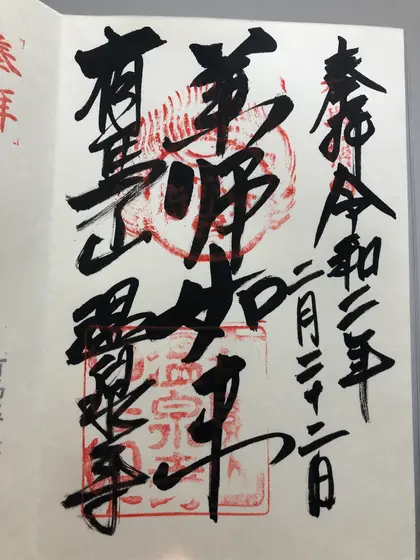 奉拝 令和二年
二月二十二日
薬師如来
有馬山 温泉寺
奉拝